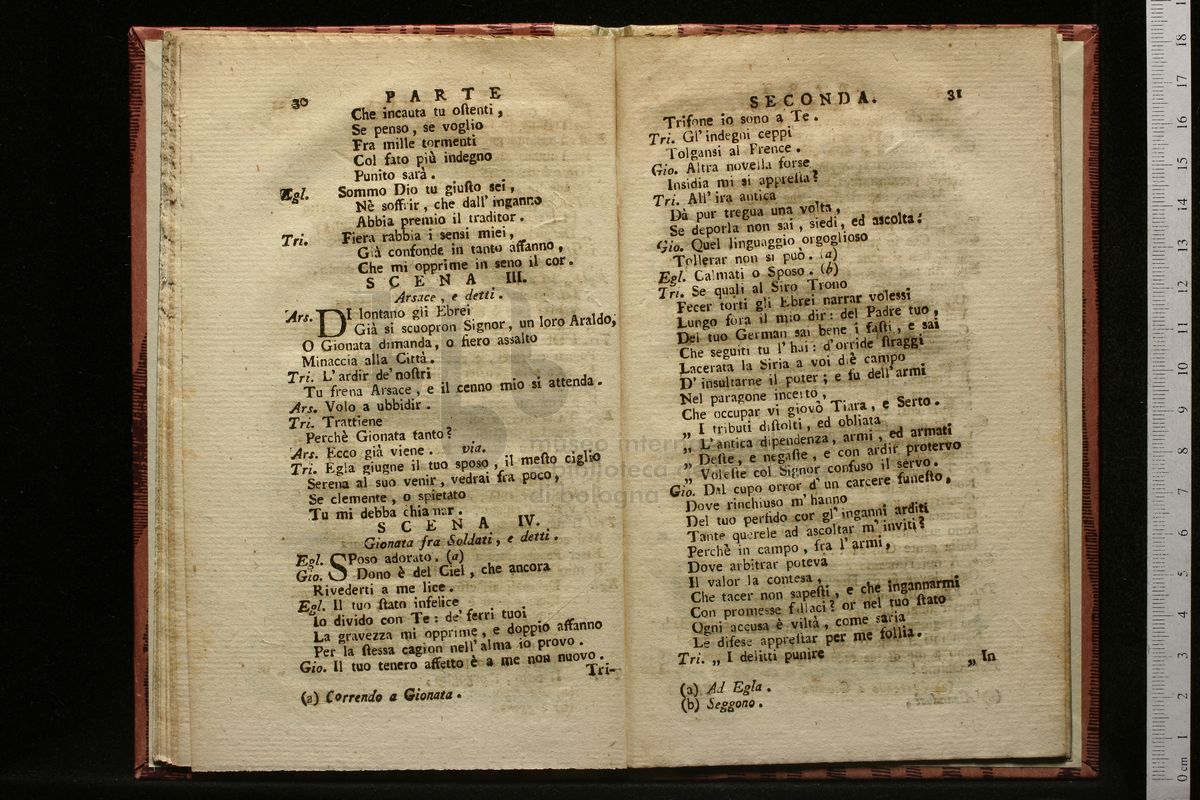 30 PARTE
Che incauta tu oſtenti,
Se penso, se voglio
Fra mille tormenti
Col fato più indegno
Punito sarà.
Egl. Sommo Dio tu giuſto sei,
Nè soffrir, che dall' inganno
Abbia premio il traditor.
Tri. Fiera rabbia i sensi miei,
Già confonde in tanto affanno,
Che mi opprime in seno il cor.
SCENA III.
Arsace, e detti.
Ars. DI lontano gli Ebrei
Già si scuopron Signor, un loro Araldo,
O Gionata dimanda, o fiero assalto
Minaccia alla Città.
Tri. L'ardir de' noſtri
Tu frena Arsace, e il cenno mio si attenda.
Ars. Volo a ubbidir.
Tri. Trattiene
Perchè Gionata tanto?
Ars. Ecco già viene. via.
Tri. Egla giugne il tuo sposo, il meſto ciglio
Serena al suo venir, vedrai fra poco,
Se clemente, o spietato
Tu mi debba chiamar.
SCENA IV.
Gionata fra Soldati, e detti.
Egl. SPoso adorato. (a)
Gio. Dono è del Ciel, che ancora
Rivederti a me lice.
Egl. Il tuo ſtato infelice
Io divido con Te: de' ferri tuoi
La gravezza mi opprime, e doppio affanno
Per la ſtessa cagion nell' alma io provo.
Gio. Il tuo tenero affetto è a me non nuovo.
Tri-
(a) Correndo a Gionata.
SECONDA. 31
Trifone io sono a Te.
Tri. Gl' indegni ceppi
Tolgansi al Prence.
Gio. Altra novella forse
Insidia mi si appreſta?
Tri. All' ira antica
Dà pur tregua una volta,
Se deporla non sai, siedi, ed ascolta:
Gio. Quel linguaggio orgoglioso
Tollerar non si può. (a)
Egl. Calmati o Sposo. (b)
Tri. Se quali al Siro Trono
Fecer torti gli Ebrei narrar volessi
Lungo fora il mio dir: del Padre tuo,
Del tuo German sai bene i faſti, e sai
Che seguiti tu l' hai: d'orride ſtraggi
Lacerata la Siria a voi diè campo
D' insultarne il poter; e fu dell' armi
Nel paragone incerto,
Che occupar vi giovò Tiara, e Serto.
„ I tributi diſtolti, ed obliata
„ L'antica dipendenza, armi, ed armati
„ Deſte, e negaſte, e con ardir protervo
„ Voleſte col Signor confuso il servo.
Gio. Dal cupo orror d' un carcere funeſto,
Dove rinchiuso m' hanno
Del tuo perfido cor gl' inganni arditi
Tante querele ad ascoltar m' inviti?
Perchè in campo, fra l' armi,
Dove arbitrar poteva
Il valor la contesa,
Che tacer non sapeſti, e che ingannarmi
Con promesse fallaci? or nel tuo ſtato
Ogni accusa è viltà, come saria
Le difese appreſtar per me follia.
Tri. „ I delitti punire
„ In
(a) Ad Egla.
(b) Seggono.
museo interna
biblioteca
di bologna
0 cm 1 2 3 4 5 6 7 8 9 10 11 12 13 14 15 16 17 18